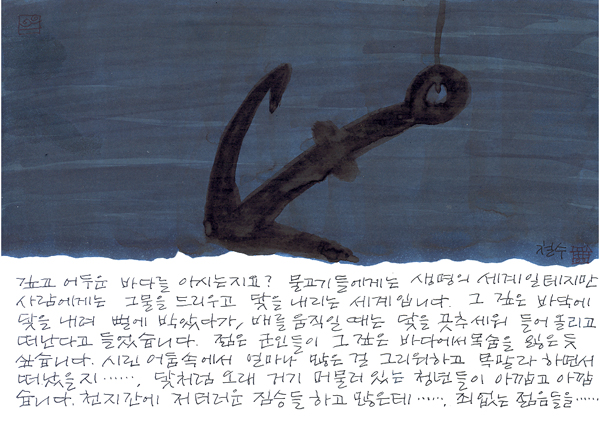 철수
깊고 어두운 바다를 아시는지요? 물고기들에게는 생명의 세계일테지만
사람에게는 그물을 드리우고 닻을 내리는 세계입니다. 그 깊은 바닥에
닻을 내려 뻘에 박았다가, 배를 움직일 때는 닻을 곳추세워 들어 올리고
떠난다고 들었습니다. 젊은 군인들이 그 깊은 바다에서 목숨을 잃은 듯
싶습니다. 시린 어둠속에서 얼마나 많은 걸 그리워하고 목말라 하면서
떠났을지‥‥‥, 닻처럼 오래 거기 머물러 있는 청년들이 아깝고 아깝
습니다. 천지간에 저 더러운 짐승들 하고 많은데‥‥‥, 죄 없는 젊음들을‥‥‥